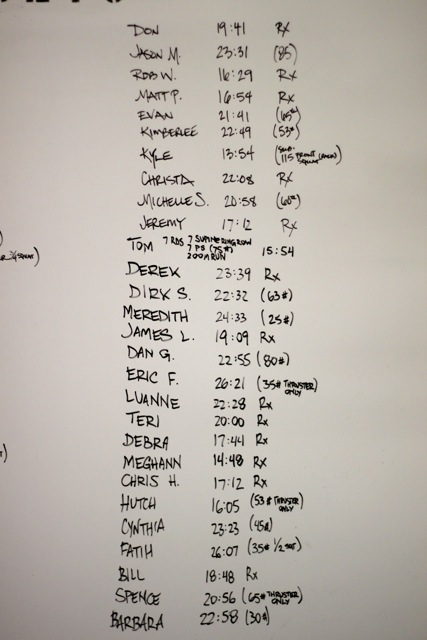 DON 19:41 Rx
JASON M. 23:31 (85)
ROB W. 16:29 Rx
MATT P. 16:54 Rx
EVAN 21:41 (65#)
KIMBERLEE 22:49 (53#)
KYLE 13:54 (SUB: 115 FRONT SQUAT)
CHRISTA 22:08 Rx
MICHELLE S. 20:58 (60#)
JEREMY 17:12 Rx
TOM 7 RDS 7 SUPINE RING ROW
7 PS (75#) 15:54
200M RUN
DEREK 23:39 Rx
DIRK S. 22:32 (63#)
MEREDITH 24:33 (25#)
JAMES L. 19:09 Rx
DAN G. 22:55 (80#)
ERIC F. 26:21 (35# THRUSTER ONLY)
LUANNE 22:28 Rx
TERI 20:00 Rx
DEBRA 17:44 Rx
MEGHANN 14:48 Rx
CHRIS H. 17:12 Rx
HUTCH 16:05 (53# THRUSTER ONLY)
CYNTHIA 23:23 (45#)
FATIH 26:07 (35# 1/2)
BILL 18:48 Rx
SPENCE 20:56 (65# THRUSTER ONLY)
BARBARA 22:58 (30#)